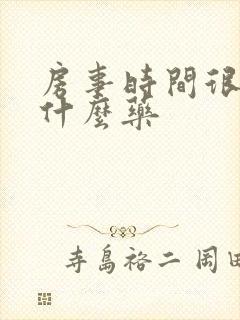 房事時間很
什麼藥
寺島裕二 岡田